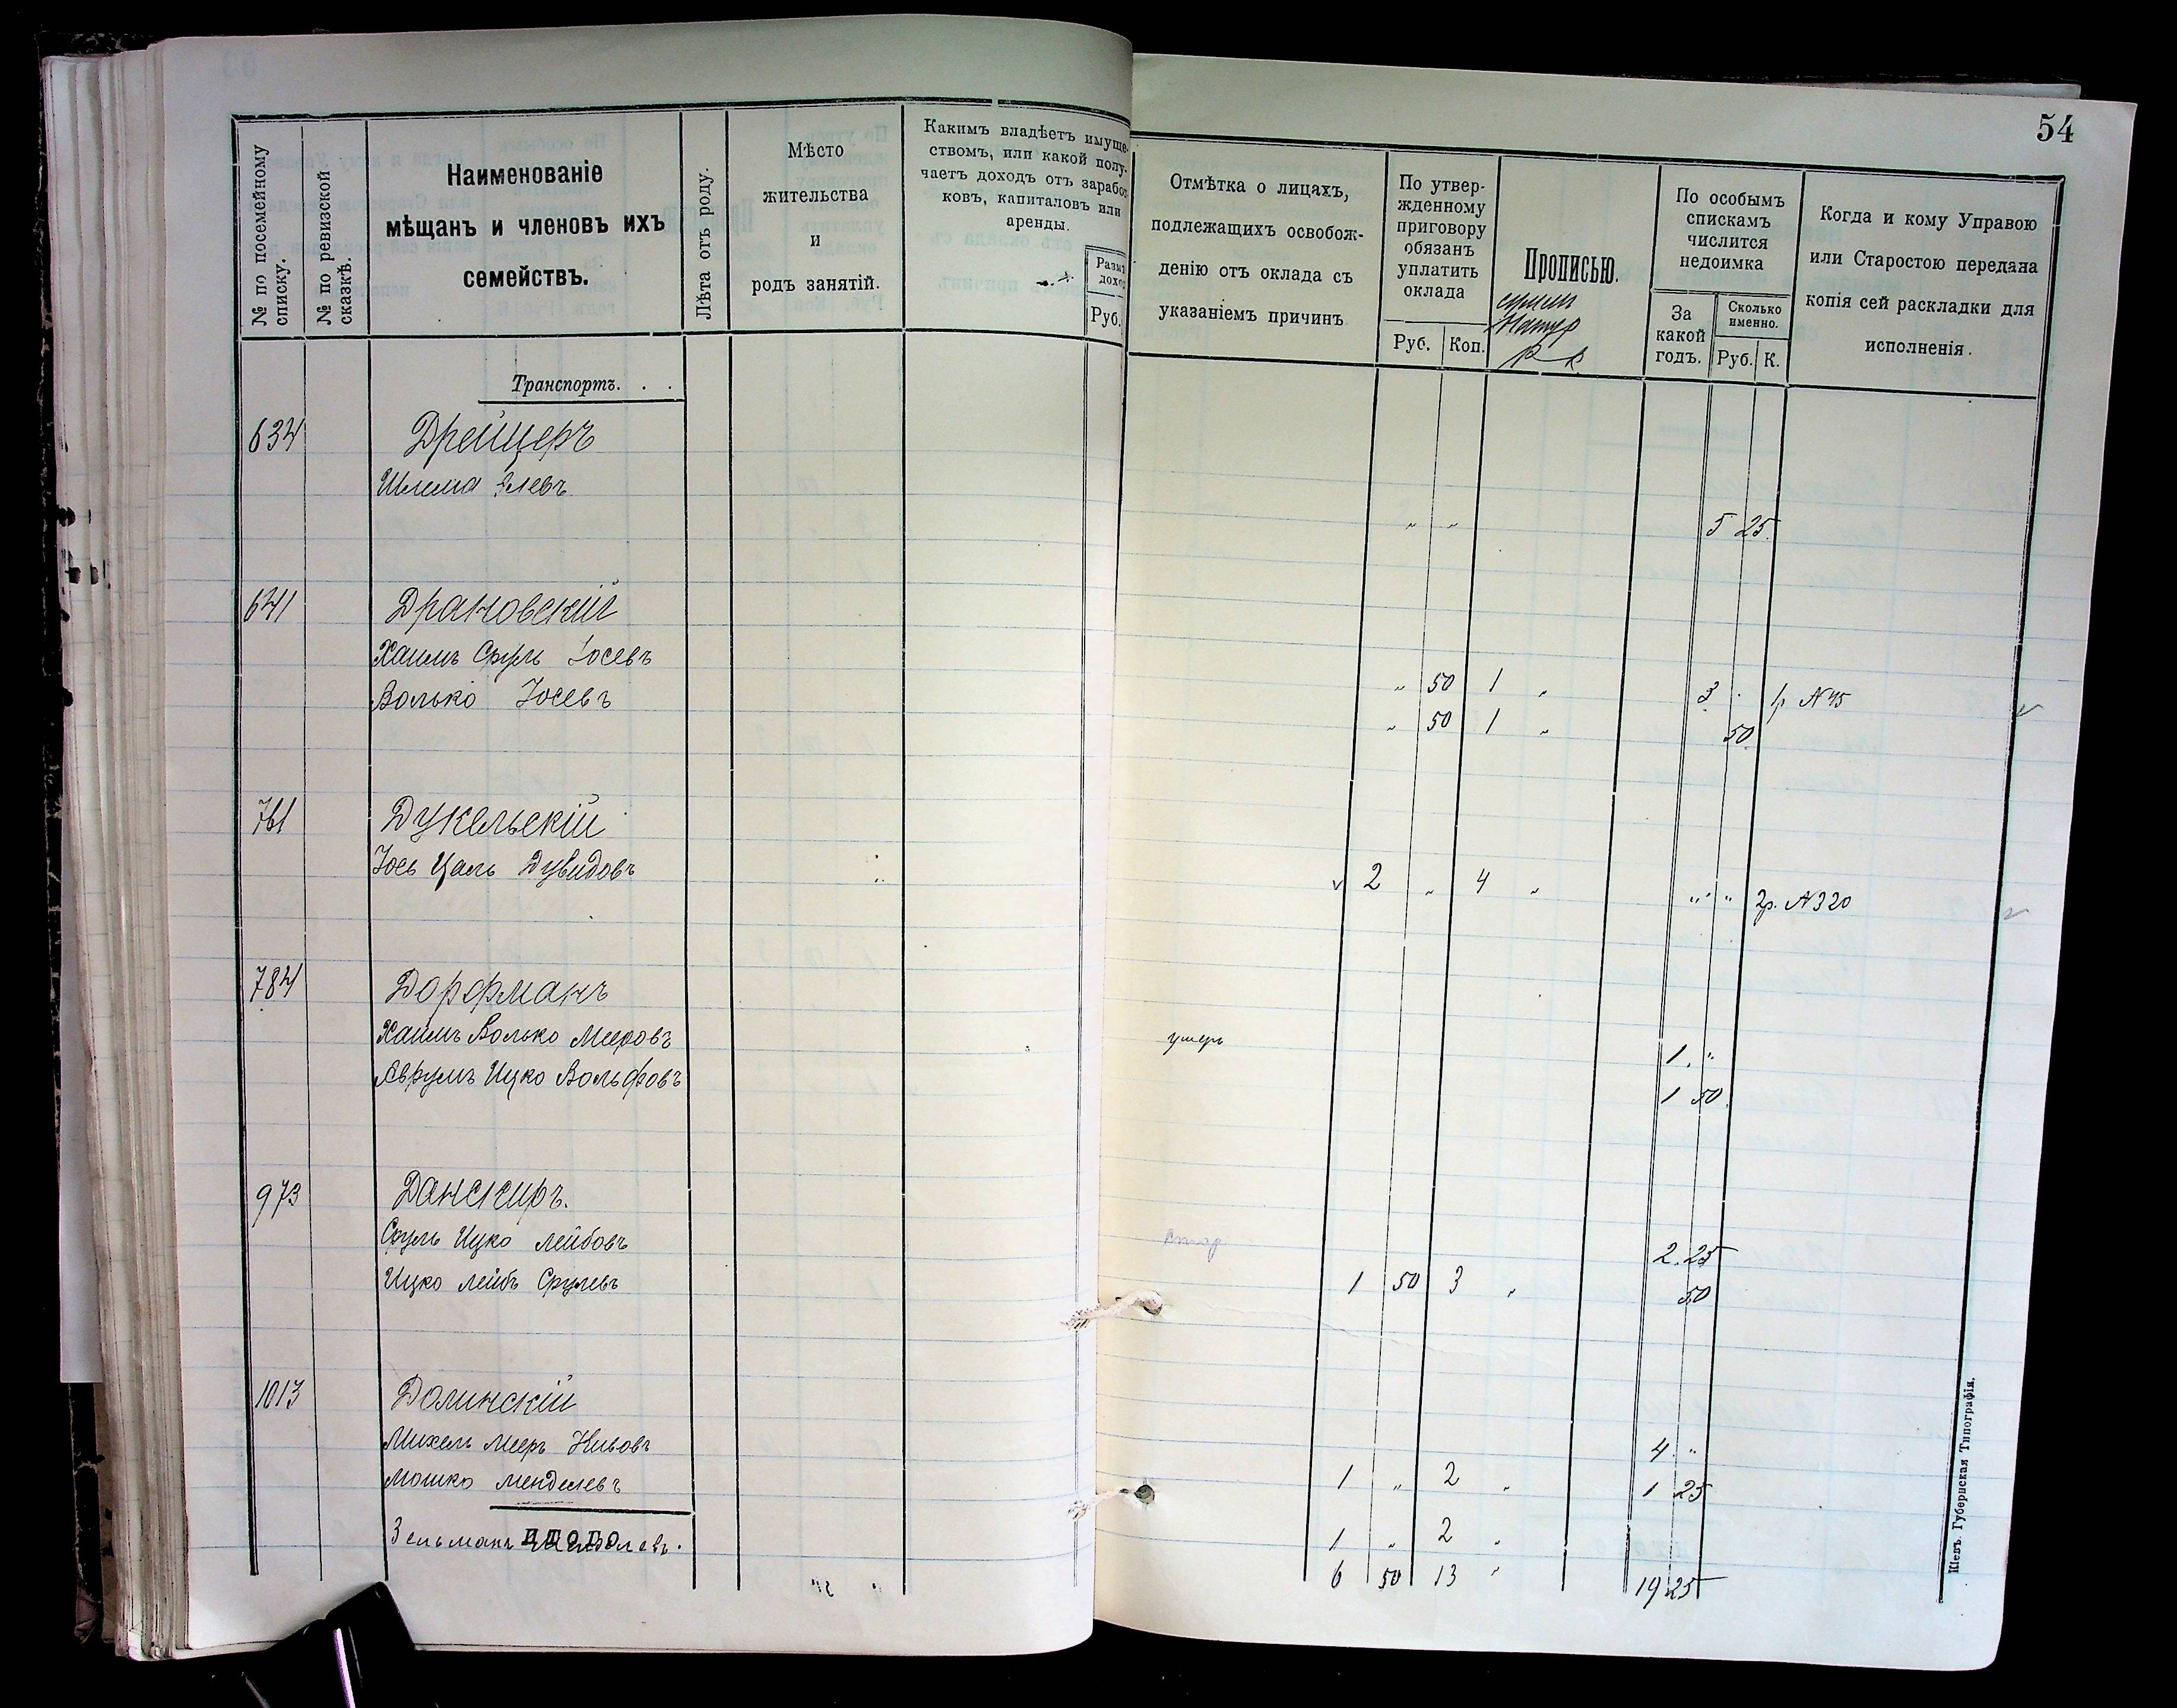 54
№ по посемейному списку.
№ по ревизской сказкѣ.
Наименованіе
мѣщанъ и членовъ ихъ
семействъ.
Лѣта отъ роду.
Мѣсто
жительства
и
родъ занятій.
Какимъ владѣетъ имуще-
ствомъ, или какой полу-
чаетъ доходъ отъ заработ-
ковъ, капиталовъ или
аренды.
Разм
доход
Руб.
Отмѣтка о лицахъ,
подлежащихъ освобож-
денію отъ оклада съ
указаніемъ причинъ
По утвер-
жденному
приговору
обязанъ
уплатить
оклада
Руб. Коп.
Прописью.
р к
По особымъ
спискамъ
числится
недоимка
За
какой
годъ.
Сколько
именно.
Руб. К.
Когда и кому Управою
или Старостою передана
копія сей раскладки для
исполненія.
Транспортъ. . .
634 Дрейцеръ
Шлема Элевъ
" " 5 25.
641 Драновскій
Хаимъ Сруль Іосевъ " 50 1 " 3 . 1р N 45
Волько Іосевъ " 50 1 " 50
761 Дукельскій
Іось Цаль Дувидовъ 2 " 4 " " " 2р. N 320
784 Дорфманъ
Хаимъ Волько Мееровъ умеръ 1 "
Аврумъ Ицко Вольфовъ 1 50
973 Данскиръ.
Сруль Ицко Лейбовъ 2.25
Ицко Лейбъ Срулевъ 1 50 3 " 50
1013 Долинскій
Михель Мееръ 4 "
Мошко Менделевъ 1 " 2 " 1 25
Зельманъ Менделевъ. 1 " 2 "
Итого
6 50 13 " 19 25
Кіевъ. Губернская Типографія.